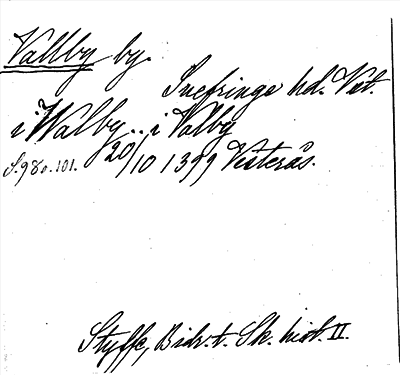 Vallby by.
Snefringe hd. Vst.
i Walby .. i Valby
S. 98 o. 101. 20/10 1399 Vesterås.
Styffe, Bidr. t. Sk. hist. II.